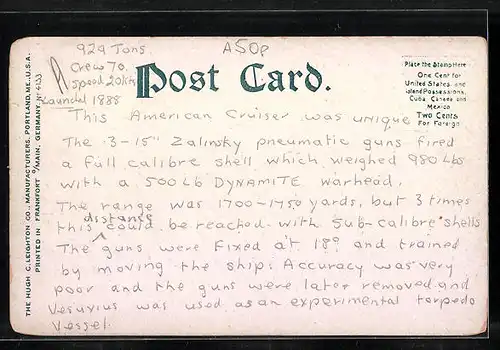 929 Tons
A50p
Crew 70.
Speed 20kts
Launched 1888
Post Card.
Place the Stamp Here
One Cent for
United States and
Island Possessions,
Cuba, Canada and
Mexico
Two Cents
For Foreign
This American Cruiser was unique
The 3-15" Zalinsky pneumatic guns fired
a full calibre shell which weighed 980 Lbs
with a 500 Lb DYNAMITE warhead.
The range was 1700-1750 yards, but 3 times
this distance could be reached with sub-calibre shells
The guns were fixed at 18° and trained
by moving the ship. Accuracy was very
poor and the guns were later removed and
Vesuvius was used as an experimental torpedo
vessel
THE HUGH C. LEIGHTON CO., MANUFACTURERS, PORTLAND, ME., U.S.A.
PRINTED IN FRANKFORT O/MAIN, GERMANY.